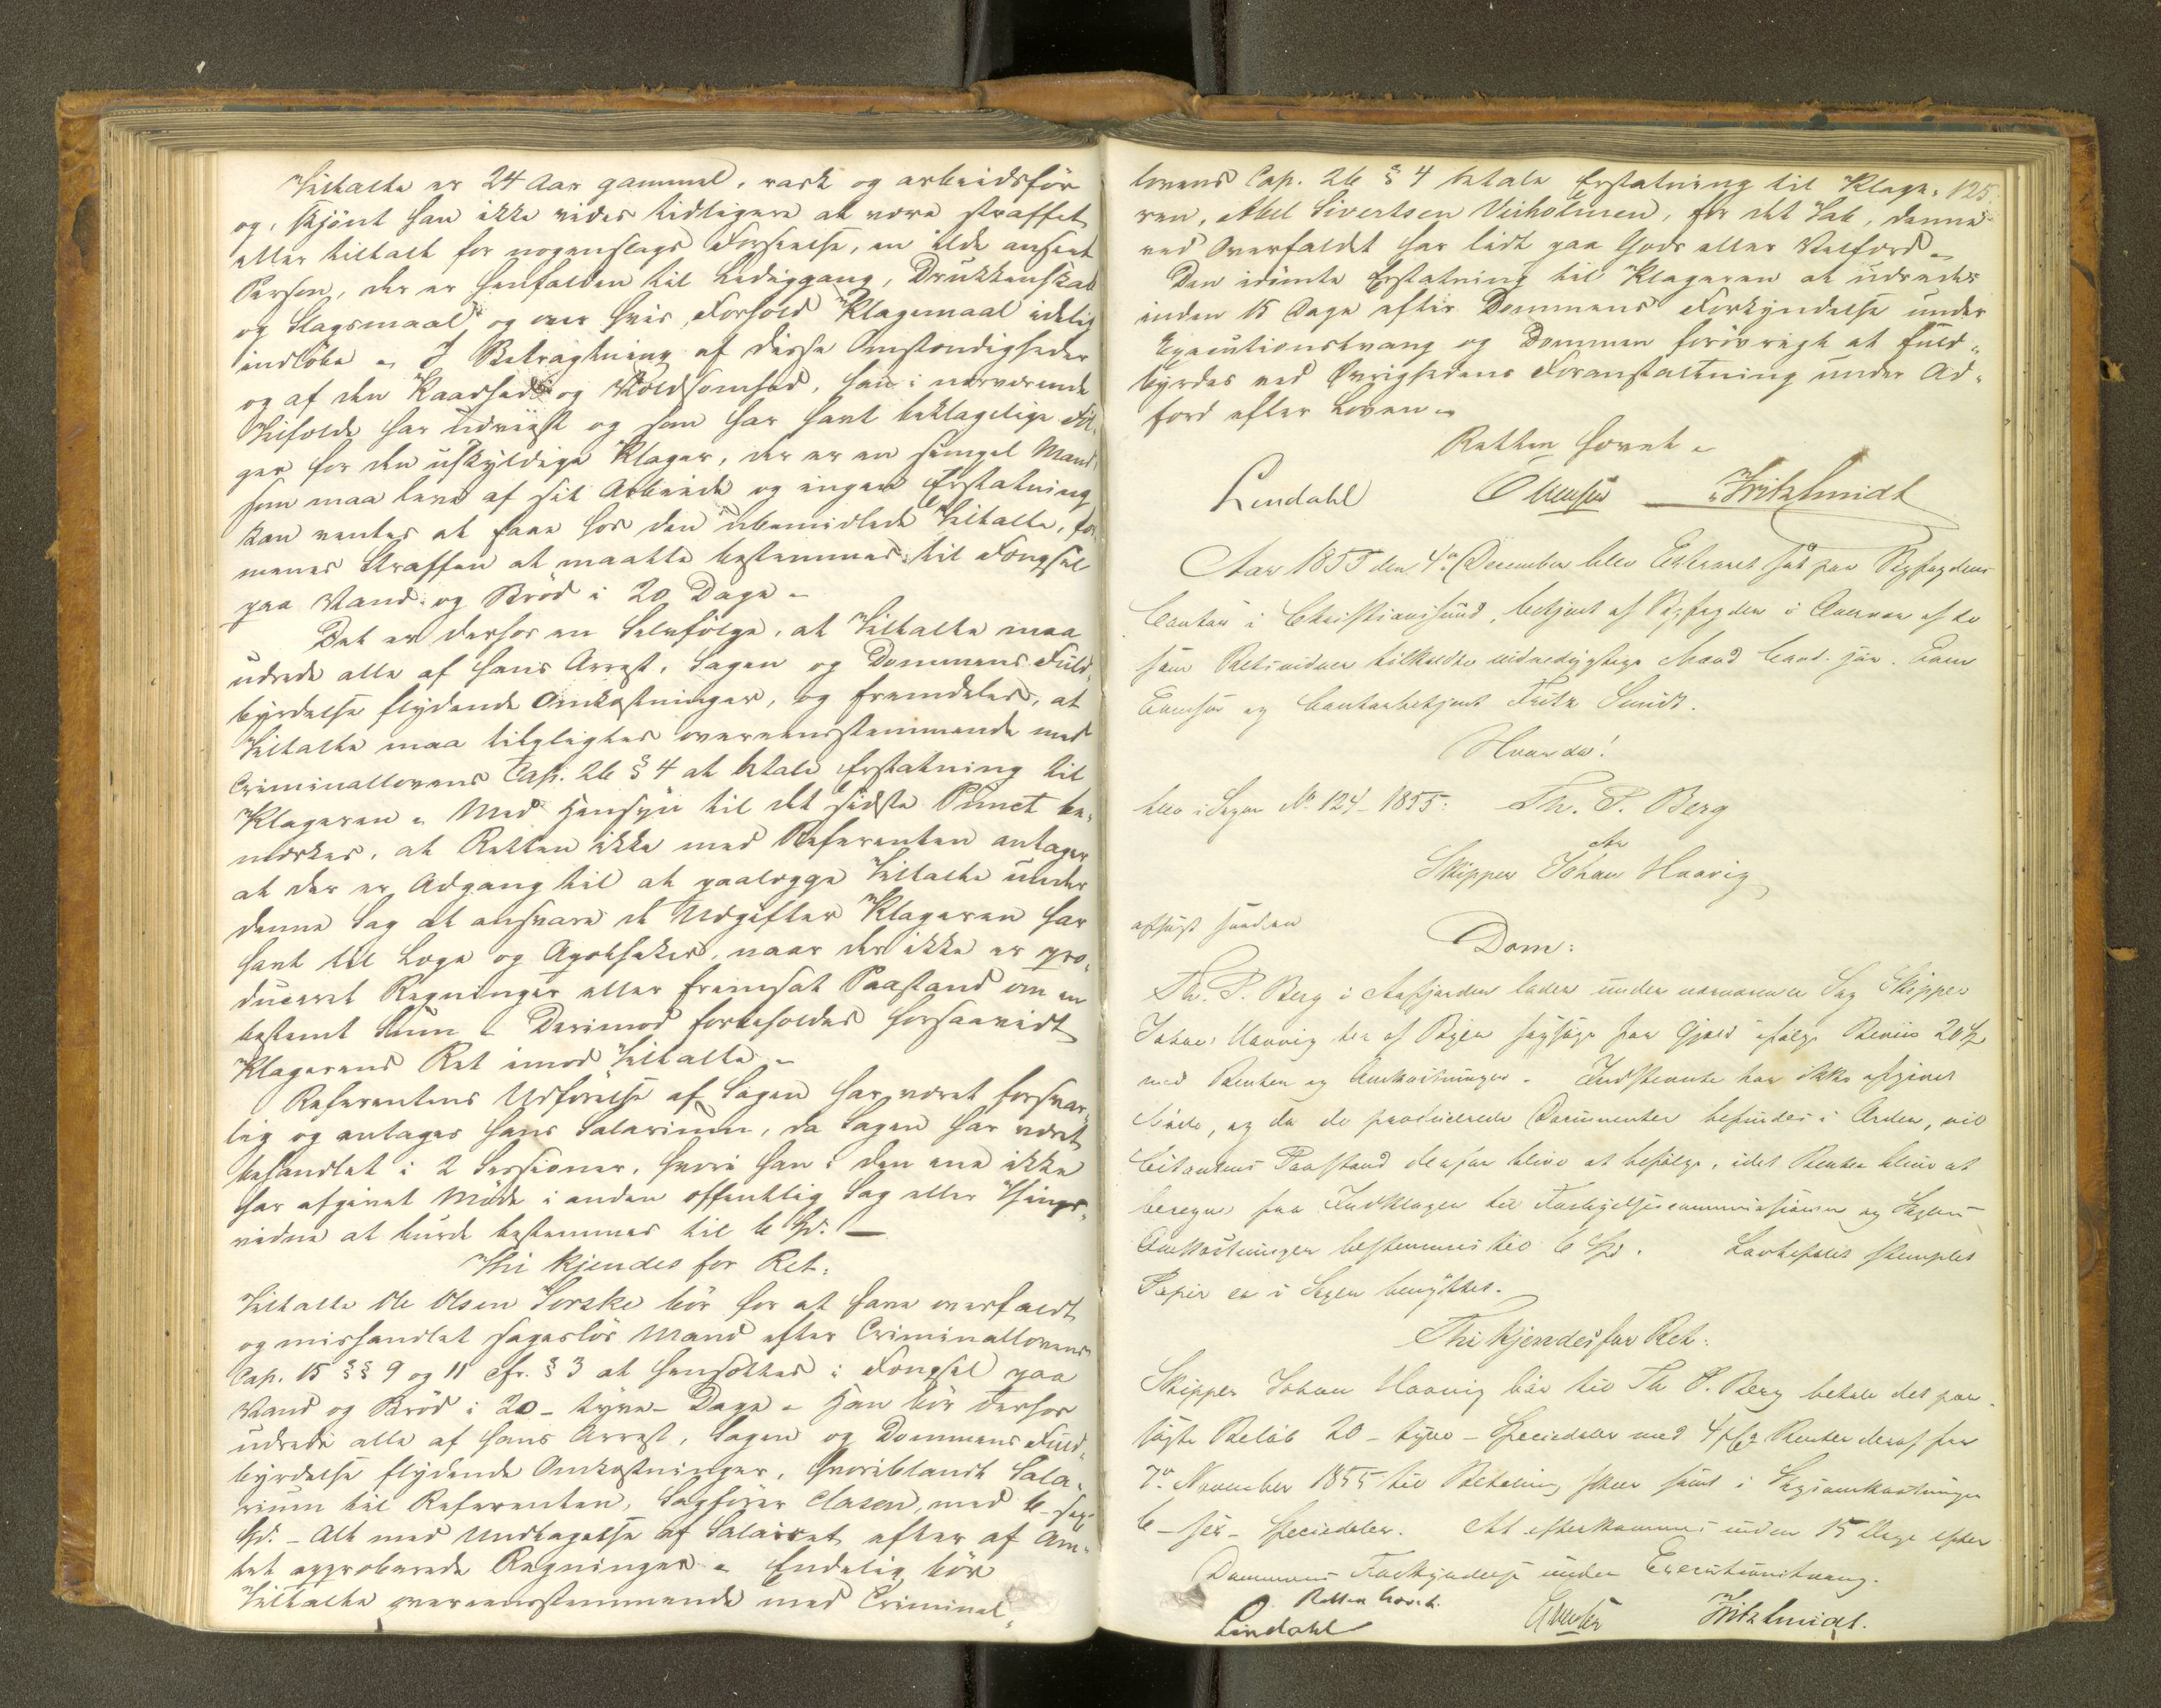 Tiltalte er 24 Aar gammel, rask og arbeidsför
og, skjönt han ikke vides tidligere at være straffet
eller tiltalt for nogenslags Forseelse, en ilde anseet
Person, der er henfalden til Lediggang, Drukkenskab
og Slagsmaal og over hvis Forhold Klagemaal idelig
indløbe - I Betragtning af disse Omstændigheder
og af den Raadhed og Voldsomhed, han i nærværende
Tilfælde har udviist og som har havt beklagelige Föl-
ger for den uskyldige Klager, der er en simpel Mand,
som maa leve af sit Arbeide og ingen Erstatning
kan ventes at faae hos den ubemidlede Tiltalte, for-
menes Straffen at maatte bestemmes til Fængsel
paa Vand og Bröd i 20 Dage -
Det er derfor en Selvfölge, at Tiltalte maa
udrede alle af hans Arrest, Sagen og Dommens Fuld-
byrdelse flydende Omkostninger, og fremdeles, at
Tiltalte maa tilpligtes overeensstemmende med
Criminallovens Cap. 26 § 4 at betale Erstatning til
Klageren - Med Hensyn til det sidste Punct be-
mærkes, at Retten ikke med Referenten antager
at der er Adgang til at paalægge Tiltalte under
denne Sag at ansvare de Udgifter Klageren har
havt til Læge og Apotheker, naar der ikke er pro-
duceret Regninger eller fremsat Paastand om en
bestemt Sum - Derimod forbeholdes forsaavidt
Klagerens Ret imod Tiltalte -
Referentens Udförelse af Sagen har været forsvar-
lig og antages hans Salarium, da Sagen har været
behandlet i 2 Sessioner, hvori han i den ene ikke
har afgivet Möde i anden offentlig Sag eller Things-
vidne at burde bestemmes til 6 Spd. -
Thi kjendes for Ret:
Tiltalte Ole Olsen Torske bör for at have overfaldt
og mishandlet sageslös Mand efter Criminallovens
Cap. 15 §§ 9 og 11 cfr. § 3 at hensættes i Fængsel paa
Vand og Bröd i 20 - tyve - Dage - Han bör derhos
udrede alle af hans Arrest, Sagen og Dommens Fuld-
byrdelse flydende Omkostninger, hvoriblandt Sala-
rium til Referenten, Sagförer Clasen, med 6 - sex -
Spd. - Alt med Undtagelse af Salairet efter af Am-
tet approberede Regninger - Endelig bör
Tiltalte overeensstemmende med Criminal-
lovens Cap. 26 § 4 betale Erstatning til Klage- 125.
ren, Abel Sivertsen Vieholmen, for det Tab, denne
ved Overfaldet har lidt paa Gods eller Velfærd -
Den idömte Erstatning til Klageren at udredes
inden 15 Dage efter Dommens Forkyndelse under
Executionstvang og Dommen foröovrigt at fuld-
byrdes ved Övrighedens Foranstaltning under Ad-
færd efter Loven -
Retten hævet -
Lindahl Fritz Smidt
Aar 1855 den 4de December blev Extraret sat paa Byfogdens
Contor i Christiansund, betjent af Byfogden i Overvær af de
som Retsvidner tilkaldte vidnedygtige Mænd Cand. jur.
og Contorbetjent Fritz Smidt.
Hvorda!
blev i Sagen No 124 - 1855: Th. P. Berg
ctr
Skipper Johan Haavig
afsagt saadan
Dom:
Th. P. Berg i Aafjorden lader under nærværende Sag Skipper
Johan Haavig her af Byen sagsöge for Gjæld ifølge Beviis 20 Spd
med Renter og Omkostninger - Indstevnte har ikke afgivet
Möde, og da de producerede Documenter befindes i Orden, vil
Citantens Paastand derfor blive at befölge, idet Renter blive at
beregne fra Indklagen til Forligelsescommissionen og Sagens
Omkostninger bestemmes til 6 Spd. Lovbefalet stemplet
Papir er i Sagen benyttet.
Thi kjendes for Ret:
Skipper Johan Haavig bör til Th P. Berg betale det paa-
sögte Belöb 20 - tyve - Speciedaler med 4 pCt Renter deraf fra
7de November 1855 til Betaling skeer samt i Sagsomkostninger
6 - sex - Speciedaler. At efterkommes inden 15 Dage efter
Dommens Forkyndelse under Executionstvang.
Retten hævet.
Lindahl Fritz Smidt.